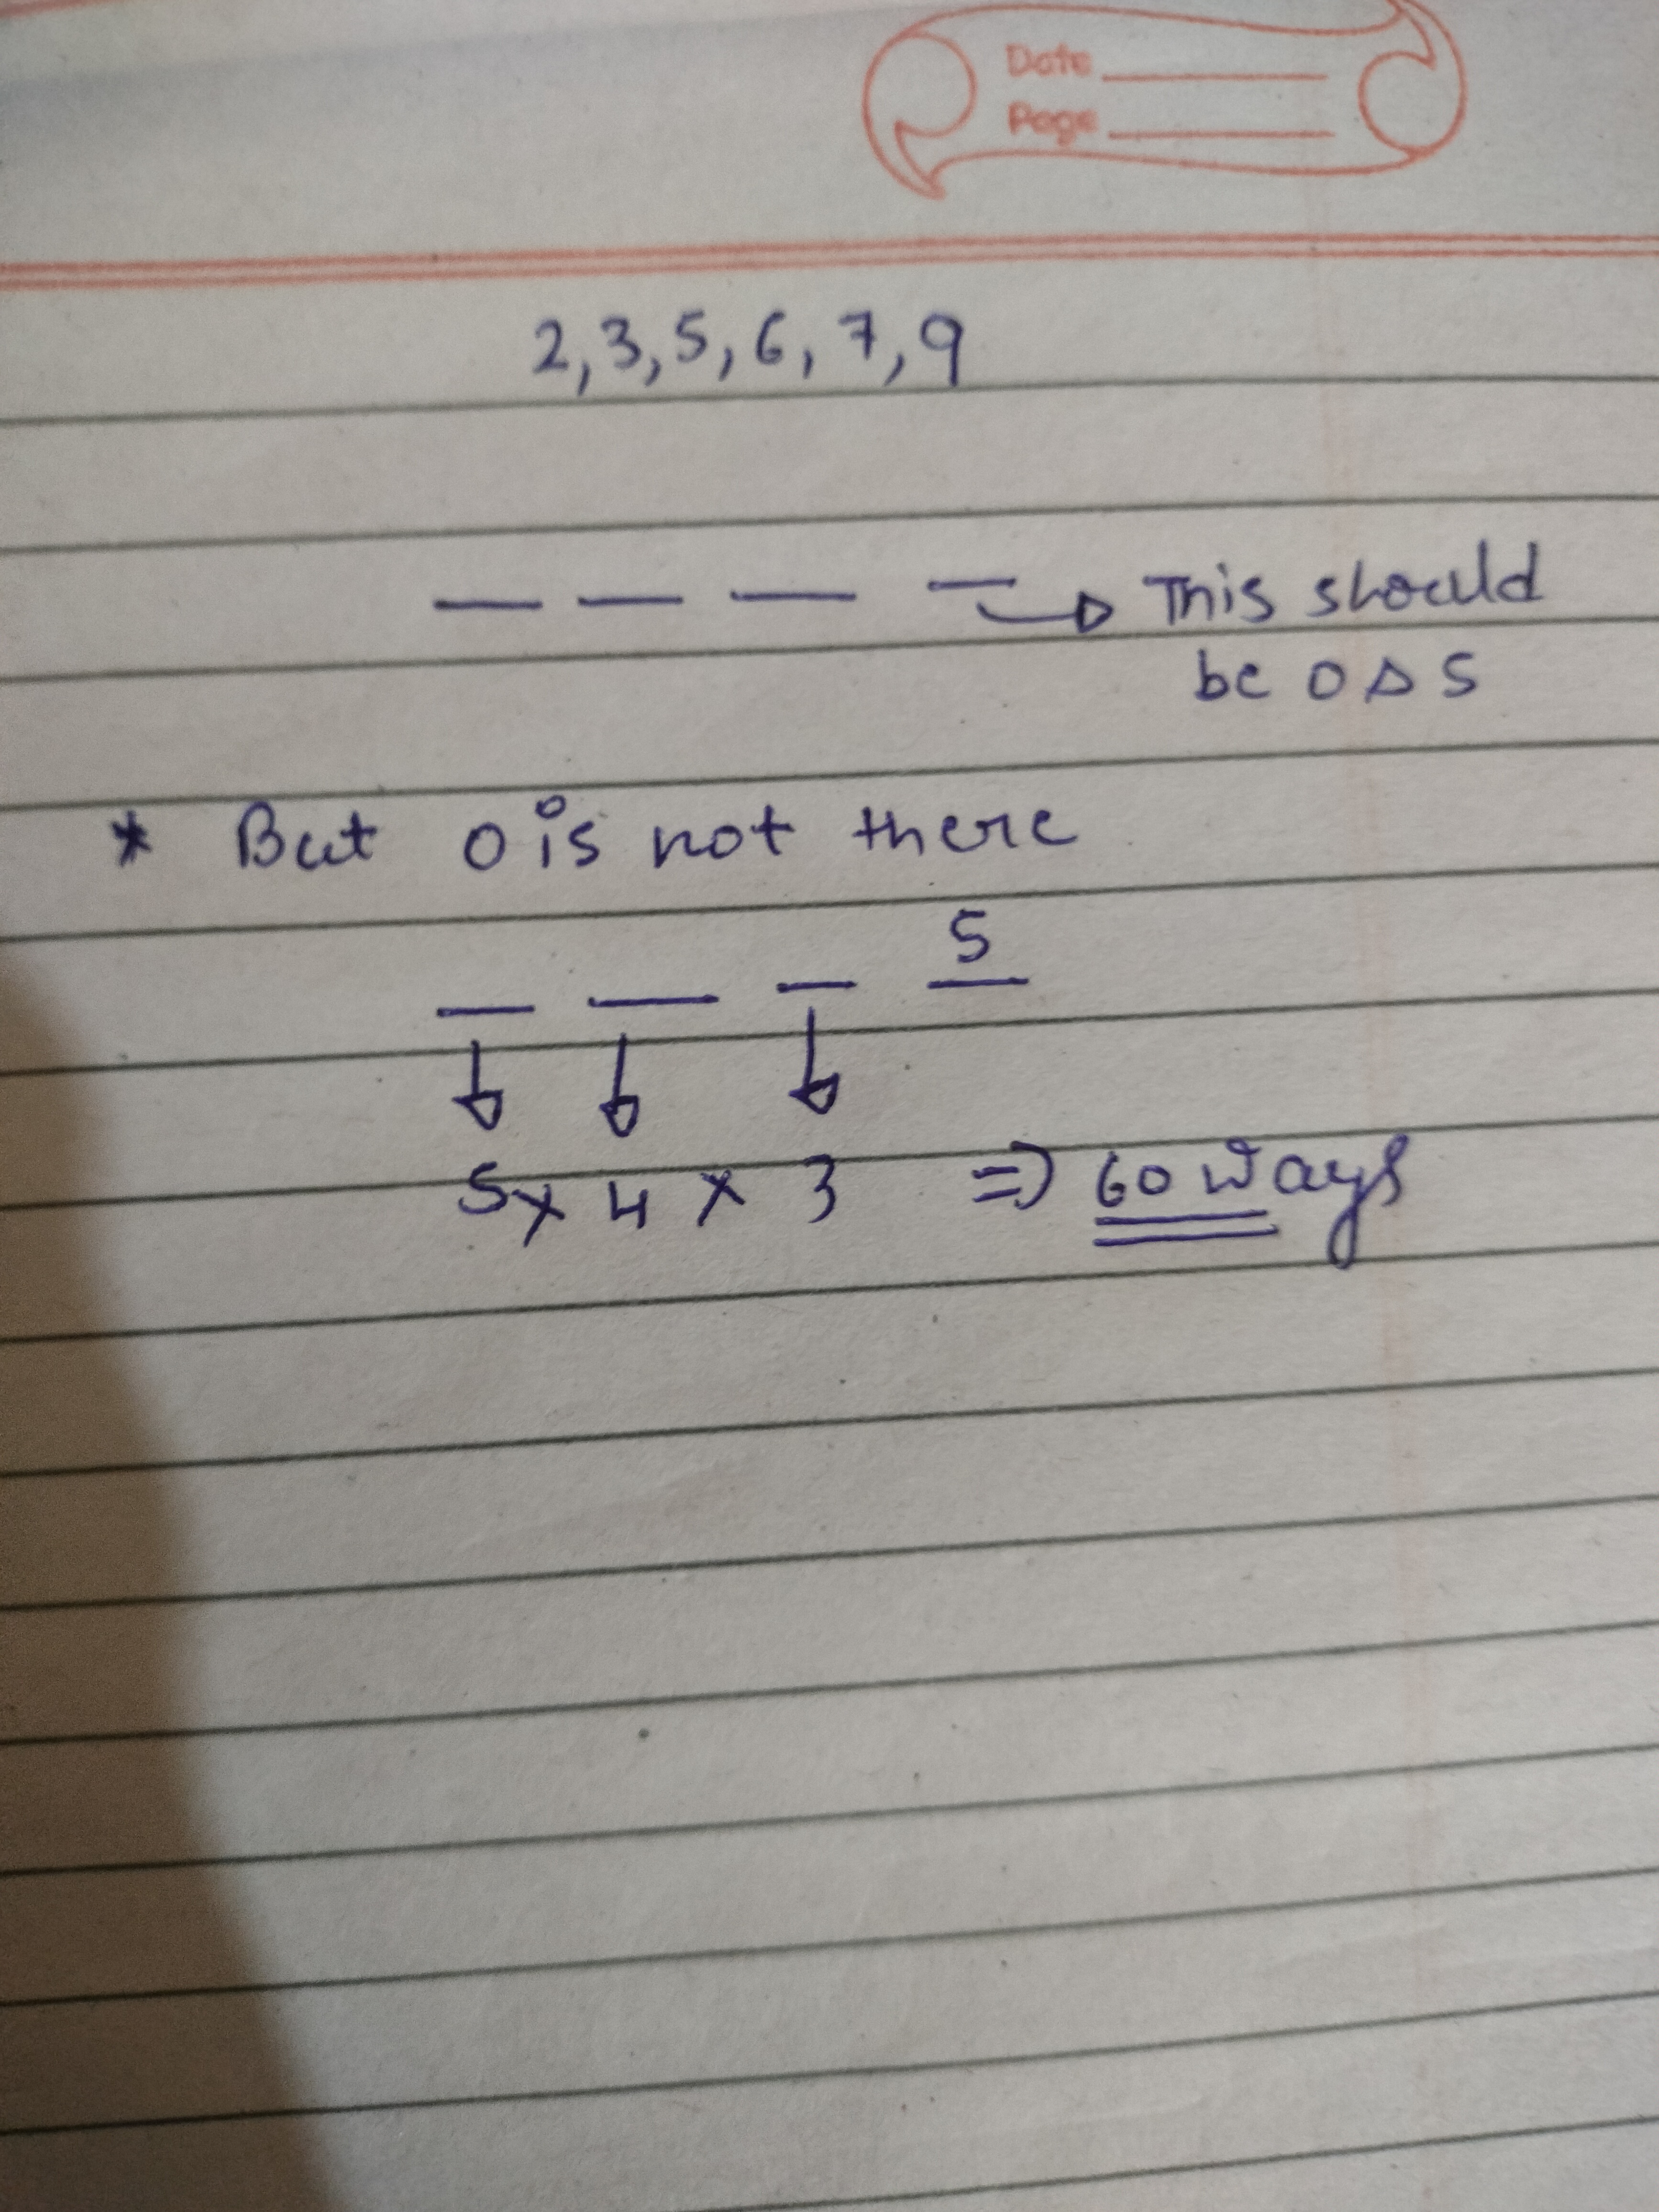 Date
Page
2, 3, 5, 6, 7, 9
This should
be 0 & 5
* But 0 is not there
5
5 x 4 x 3 => 60 ways